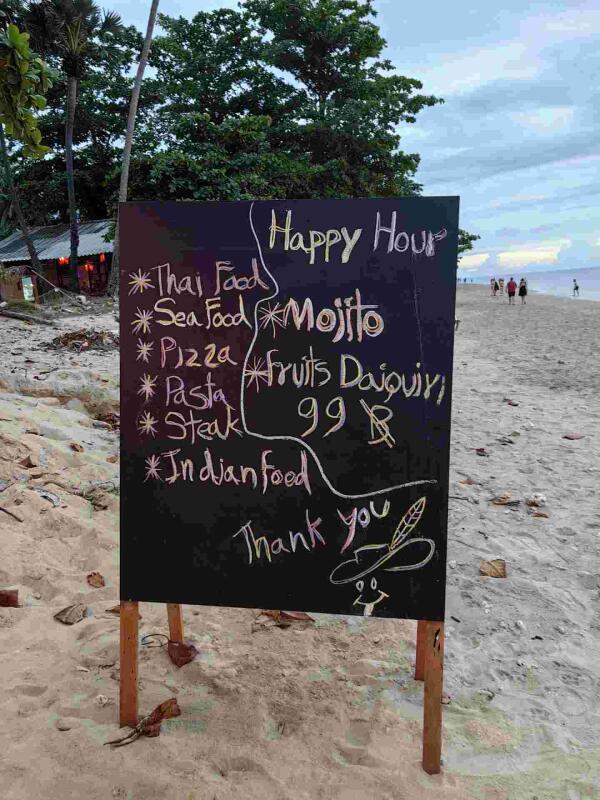 Happy Hour
* Thai Food
* Sea Food
* Pizza
* Pasta
* Steak
* Indian Food
* Mojito
* Fruits Daiquiri
99 ฿
Thank you